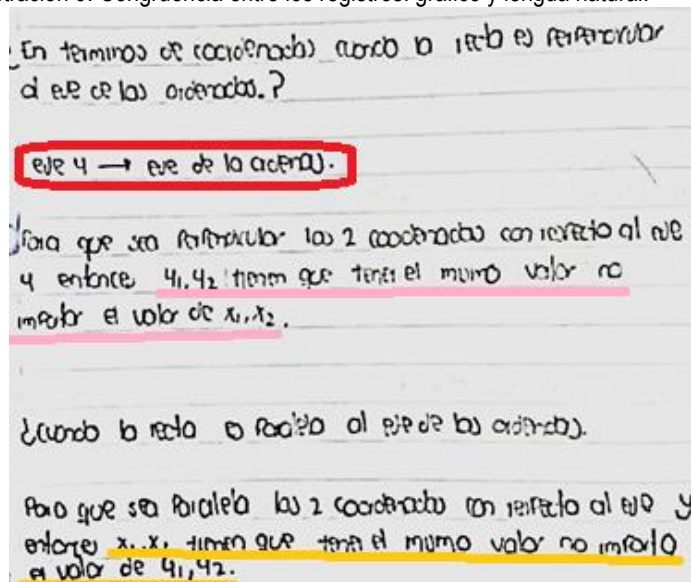 stración 5. Congruencia entre los registros: gráfico y lengua natural.
En terminos de coordenadas cuando la recta es perpendicular
al eje de las ordenadas.?
eje y → eje de la ordenas.
Para que sea Perpendicular las 2 coordenadas con respecto al eje
y entonce y₁, y₂ tienen que tener el mismo valor no
importar el valor de x₁, x₂.
¿Cuando la recta es Paralela al eje de las ordenadas.
Para que sea Paralela las 2 coordenadas con respecto al eje y
entonces x₁, x₁ tienen que tener el mismo valor no importa
el valor de y₁, y₂.